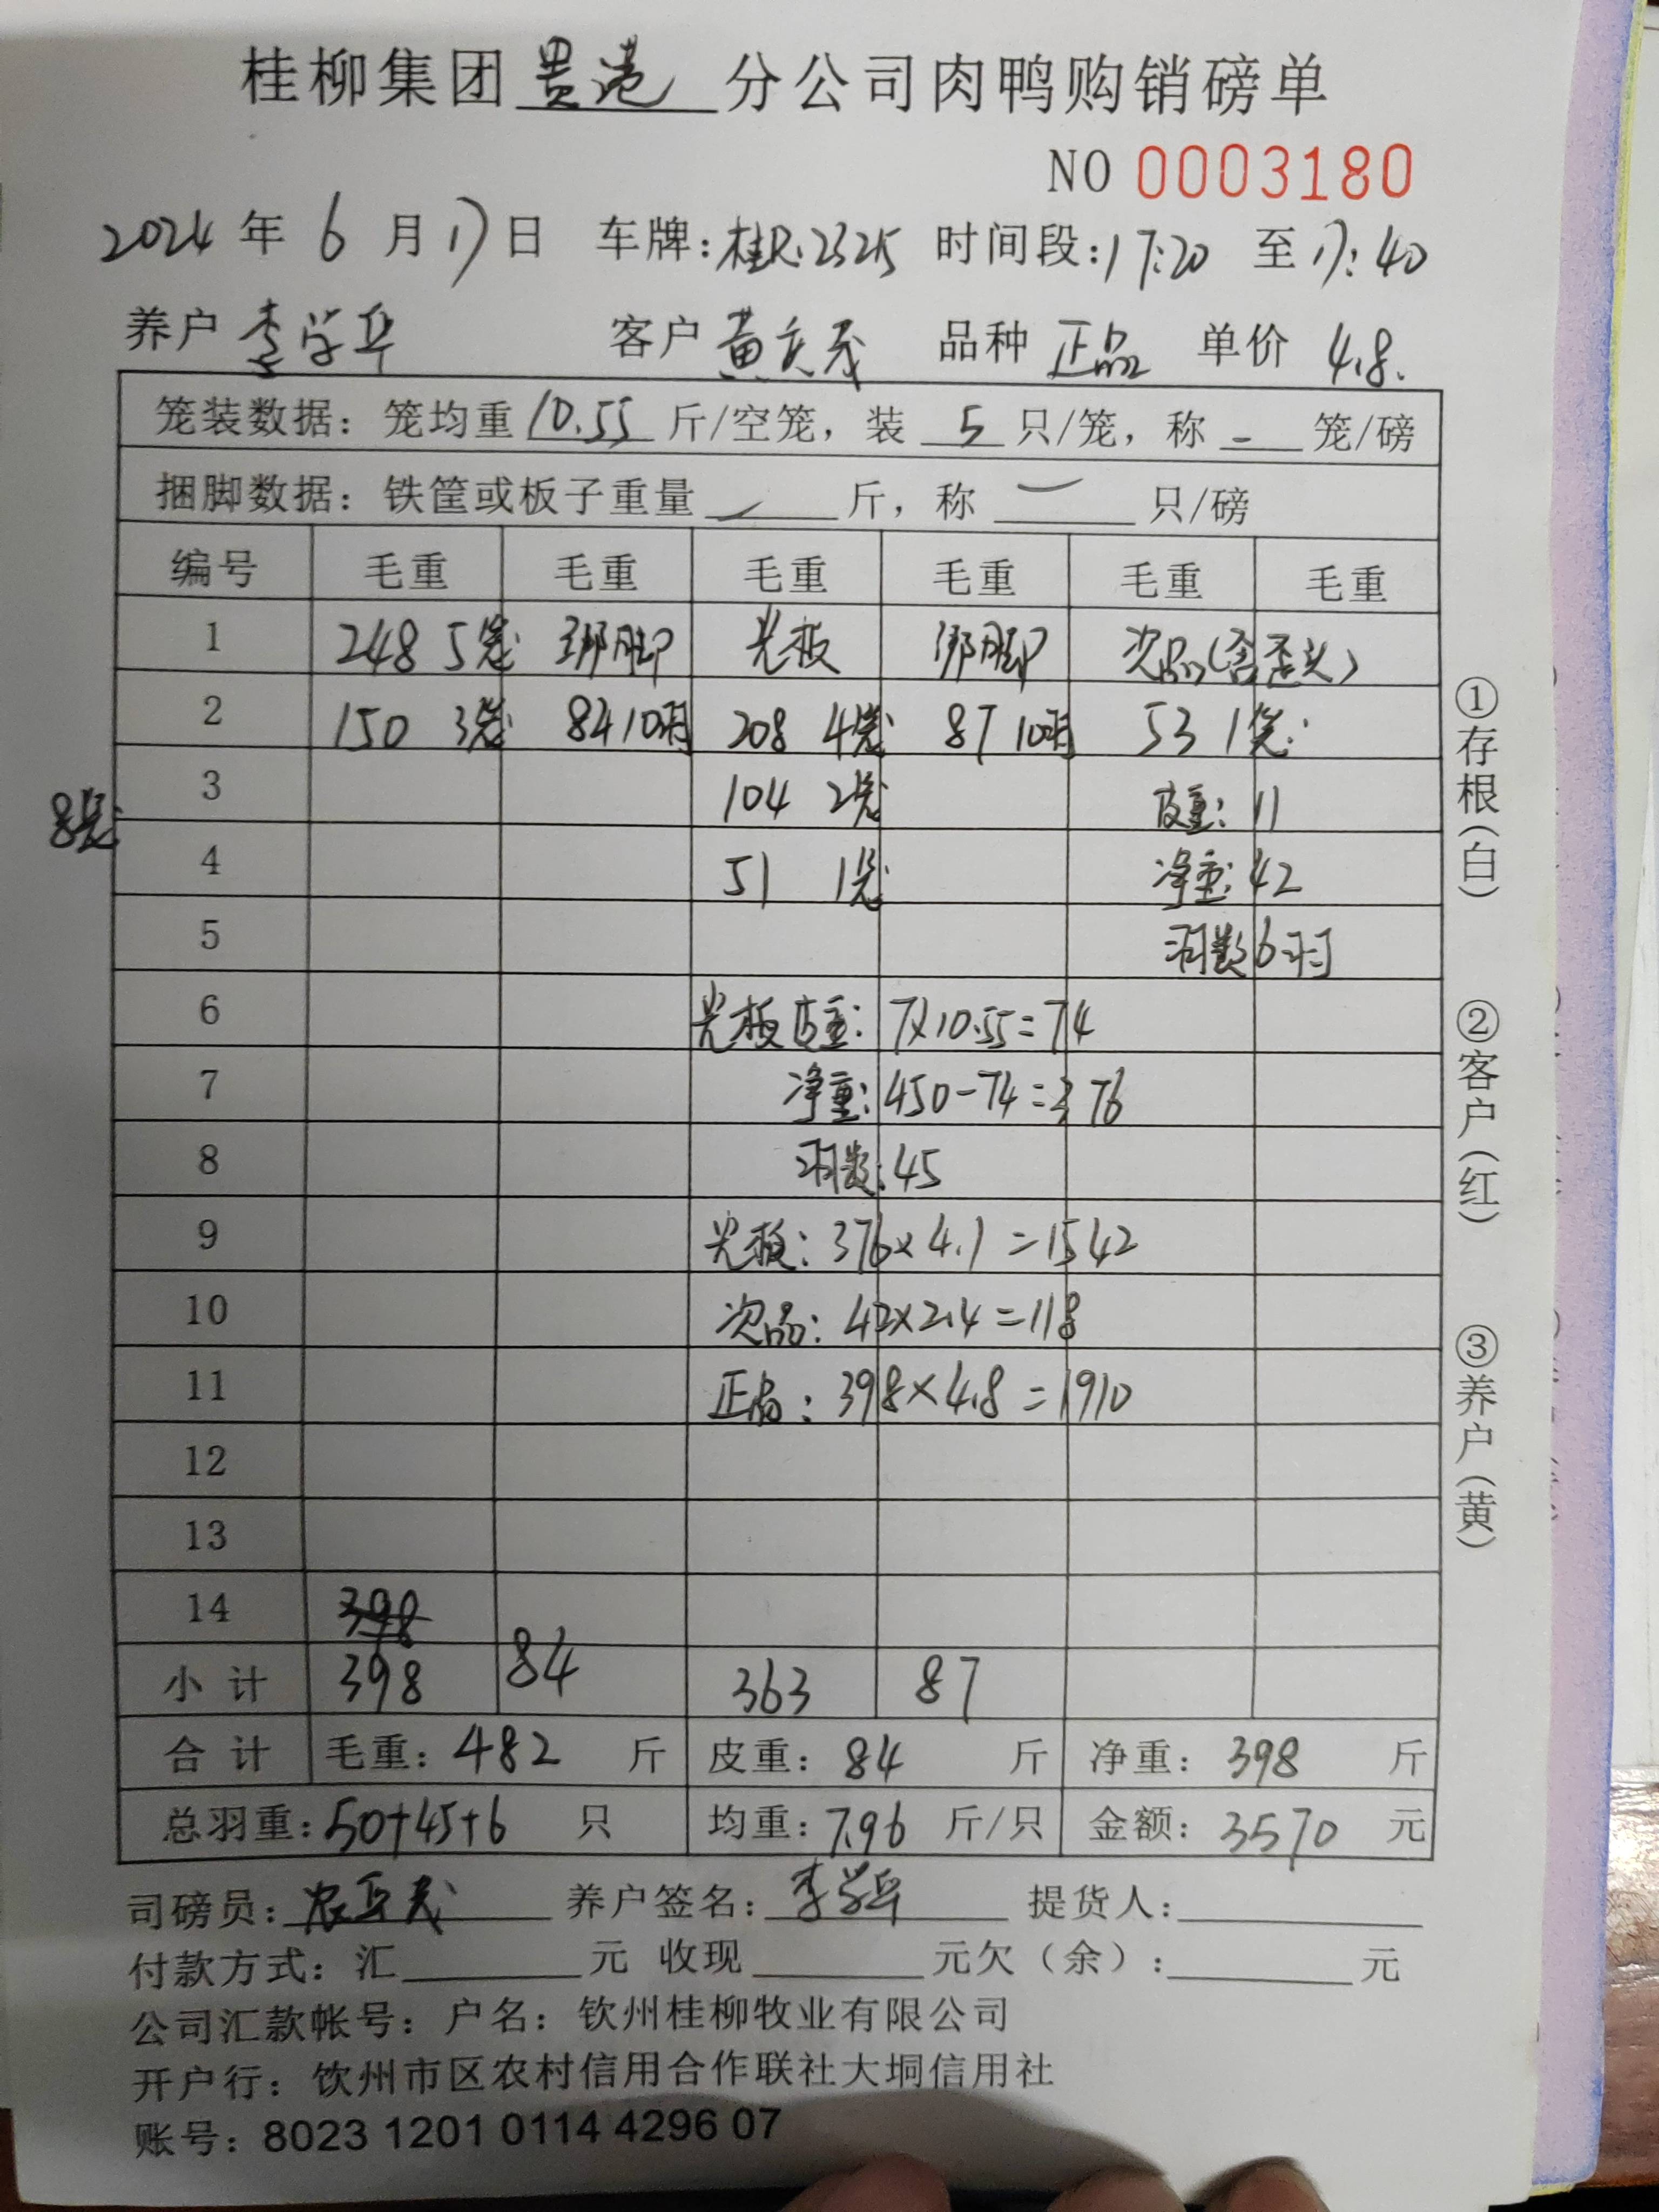 桂柳集团贵港分公司肉鸭购销磅单
NO 0003180
2024年6月17日 车牌:桂R.2325 时间段:17:20 至17:40
养户 李学兵 客户 黄 品种 正品 单价 4.8.
笼装数据：笼均重10.55斤/空笼，装5只/笼，称-笼/磅
捆脚数据：铁筐或板子重量 斤，称 只/磅
编号 毛重 毛重 毛重 毛重 毛重 毛重
1 248 5笼 绑脚 光板 绑脚 次品(含歪头)
2 150 3笼 84 10羽 208 4笼 87 10羽 53 1笼
8笼 3 104 2笼 皮重: 11
4 51 1笼 净重: 42
5 羽数6羽
6 光板皮重: 7×10.55=74
7 净重: 450-74=376
8 羽数:45
9 光板: 376×4.1=1542
10 次品: 42×2.4=118
11 正品: 398×4.8=1910
12
13
14 398
小计 398 84 363 87
合计 毛重：482 斤 皮重：84 斤 净重：398 斤
总羽重：50+45+6 只 均重：7.96 斤/只 金额：3570 元
司磅员： 养户签名：李学兵 提货人：
付款方式：汇 元 收现 元欠（余）： 元
公司汇款帐号：户名：钦州桂柳牧业有限公司
开户行：钦州市区农村信用合作联社大垌信用社
账号：8023 1201 0114 4296 07
①存根（白）
②客户（红）
③养户（黄）